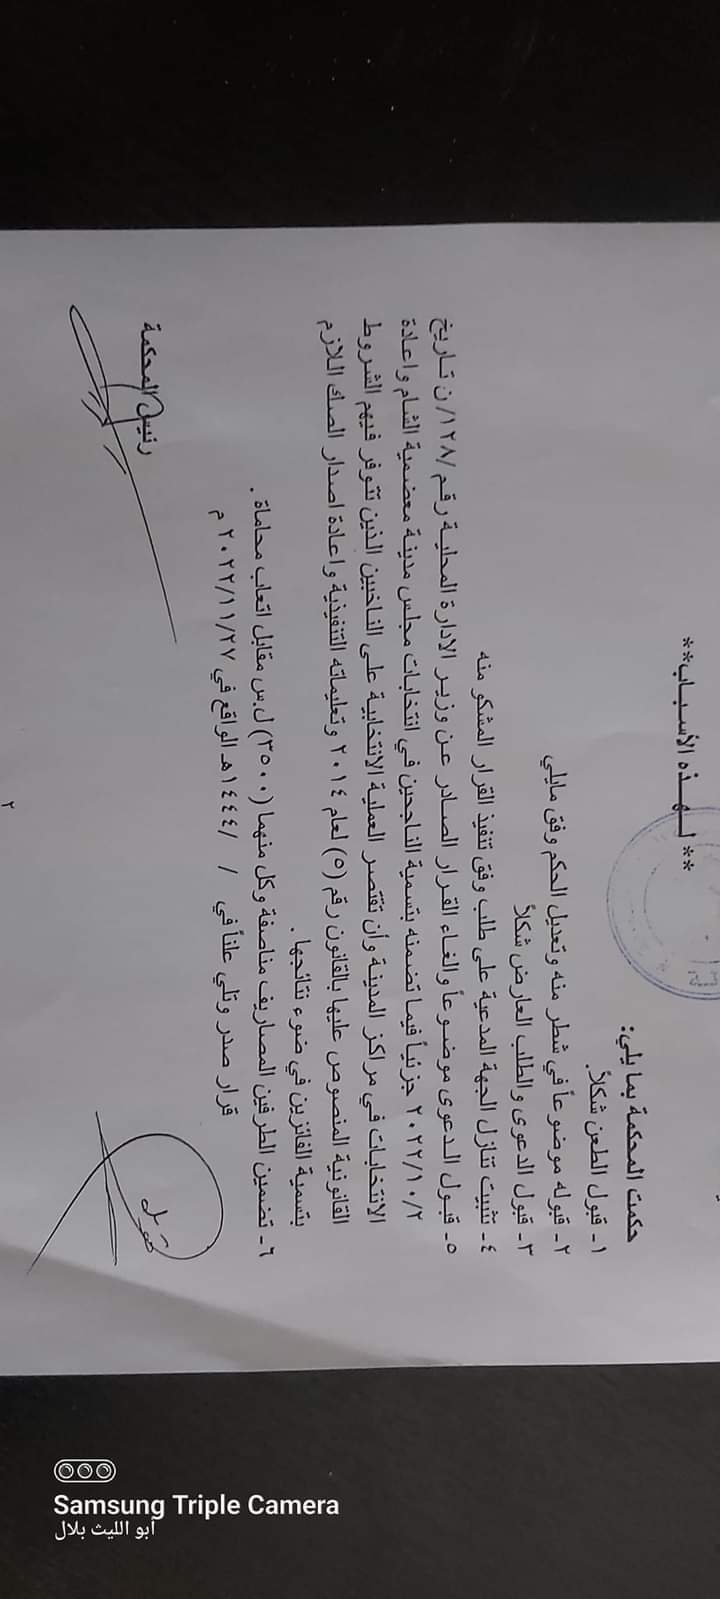 ** لـهـذه الأسـبـاب**
حكمت المحكمة بما يلي:
١- قبول الطعن شكلاً.
٢- قبوله موضوعاً في شطر منه وتعديل الحكم وفق مايلي
٣- قبول الدعوى والطلب العارض شكلاً
٤- تثبيت تنازل الجهة المدعية على طلب وفق تنفيذ القرار المشكو منه
٥- قبول الدعوى موضوعاً والغاء القرار الصادر عن وزير الادارة المحلية رقم /١٢٨/ن تاريخ
٢٠٢٢/١٠/٢ جزئياً فيما تضمنه بتسمية الناجحين في انتخابات مجلس مدينة معضمية الشام واعادة
الانتخابات في مراكز المدينة وأن تقتصر العملية الانتخابية على الناخبين الذين تتوفر فيهم الشروط
القانونية المنصوص عليها بالقانون رقم (٥) لعام ٢٠١٤ وتعليماته التنفيذية واعادة اصدار الصك اللازم
بتسمية الفائزين في ضوء نتائجها .
٦- تضمين الطرفين المصاريف مناصفة وكل منهما (٣٥٠٠) ل.س مقابل اتعاب محاماة .
قرار صدر وتلي علناً في / /١٤٤٤هـ الواقع في ٢٠٢٢/١١/٢٧ م
رئيس المحكمة
٢
Samsung Triple Camera
أبو الليث بلال